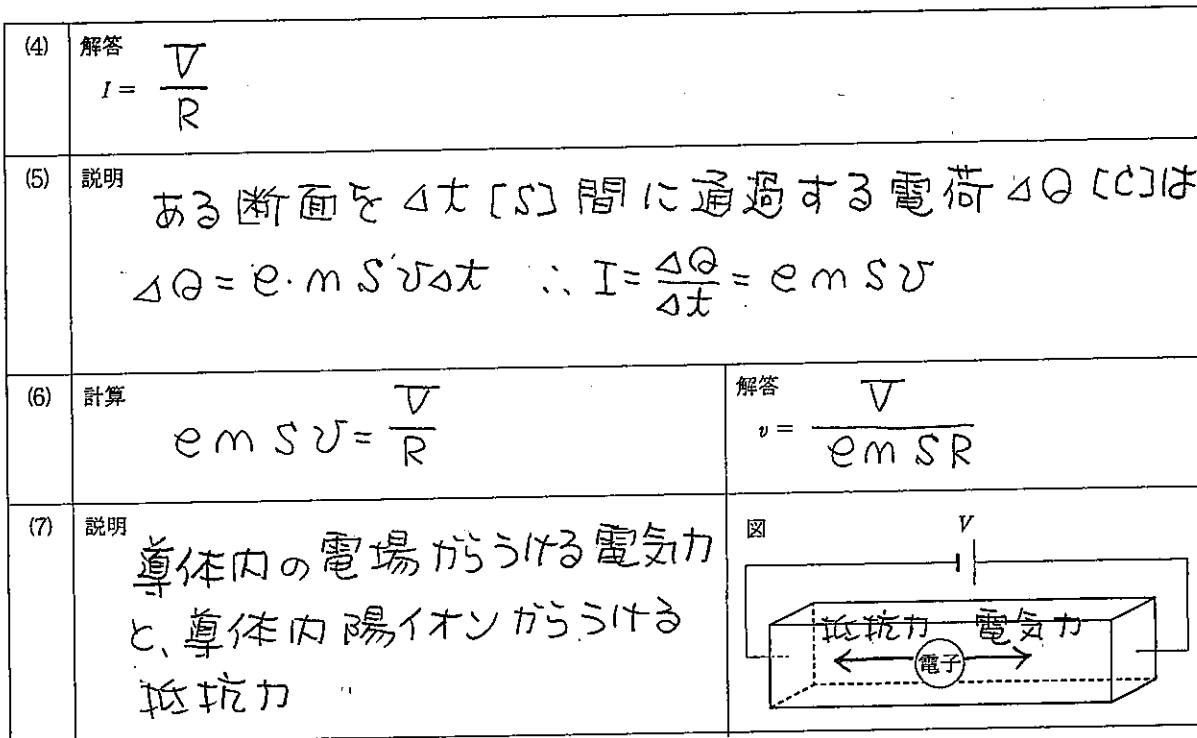 (4) 解答
I = V/R
(5) 説明
ある断面を Δt [S] 間に通過する電荷 ΔQ [C]は
ΔQ = e・n S v Δt ∴ I = ΔQ/Δt = e n S v
(6) 計算
e n S v = V/R
解答
v = V/(e n S R)
(7) 説明
導体内の電場からうける電気力
と、導体内陽イオンからうける
抵抗力
図
V
抵抗力 電気力
電子